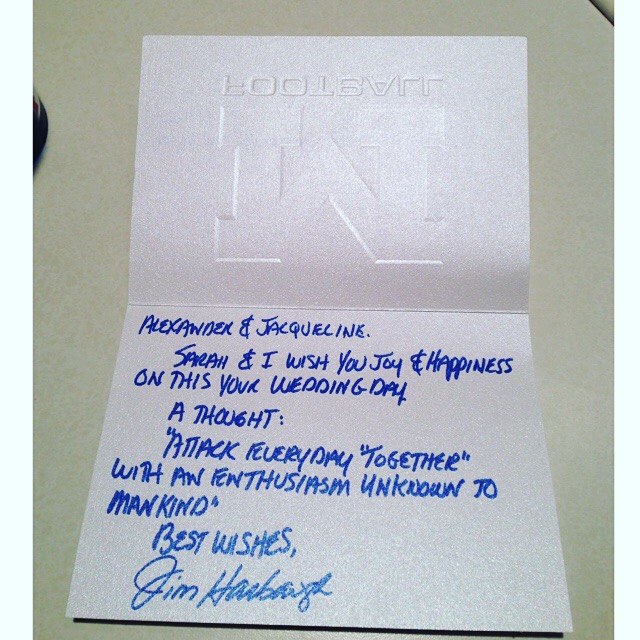 FOOTBALL
M
ALEXANDER & JACQUELINE.
SARAH & I WISH YOU JOY & HAPPINESS
ON THIS YOUR WEDDING DAY
A THOUGHT:
"ATTACK EVERYDAY "TOGETHER"
WITH AN ENTHUSIASM UNKNOWN TO
MANKIND"
BEST WISHES,
Jim Harbaugh